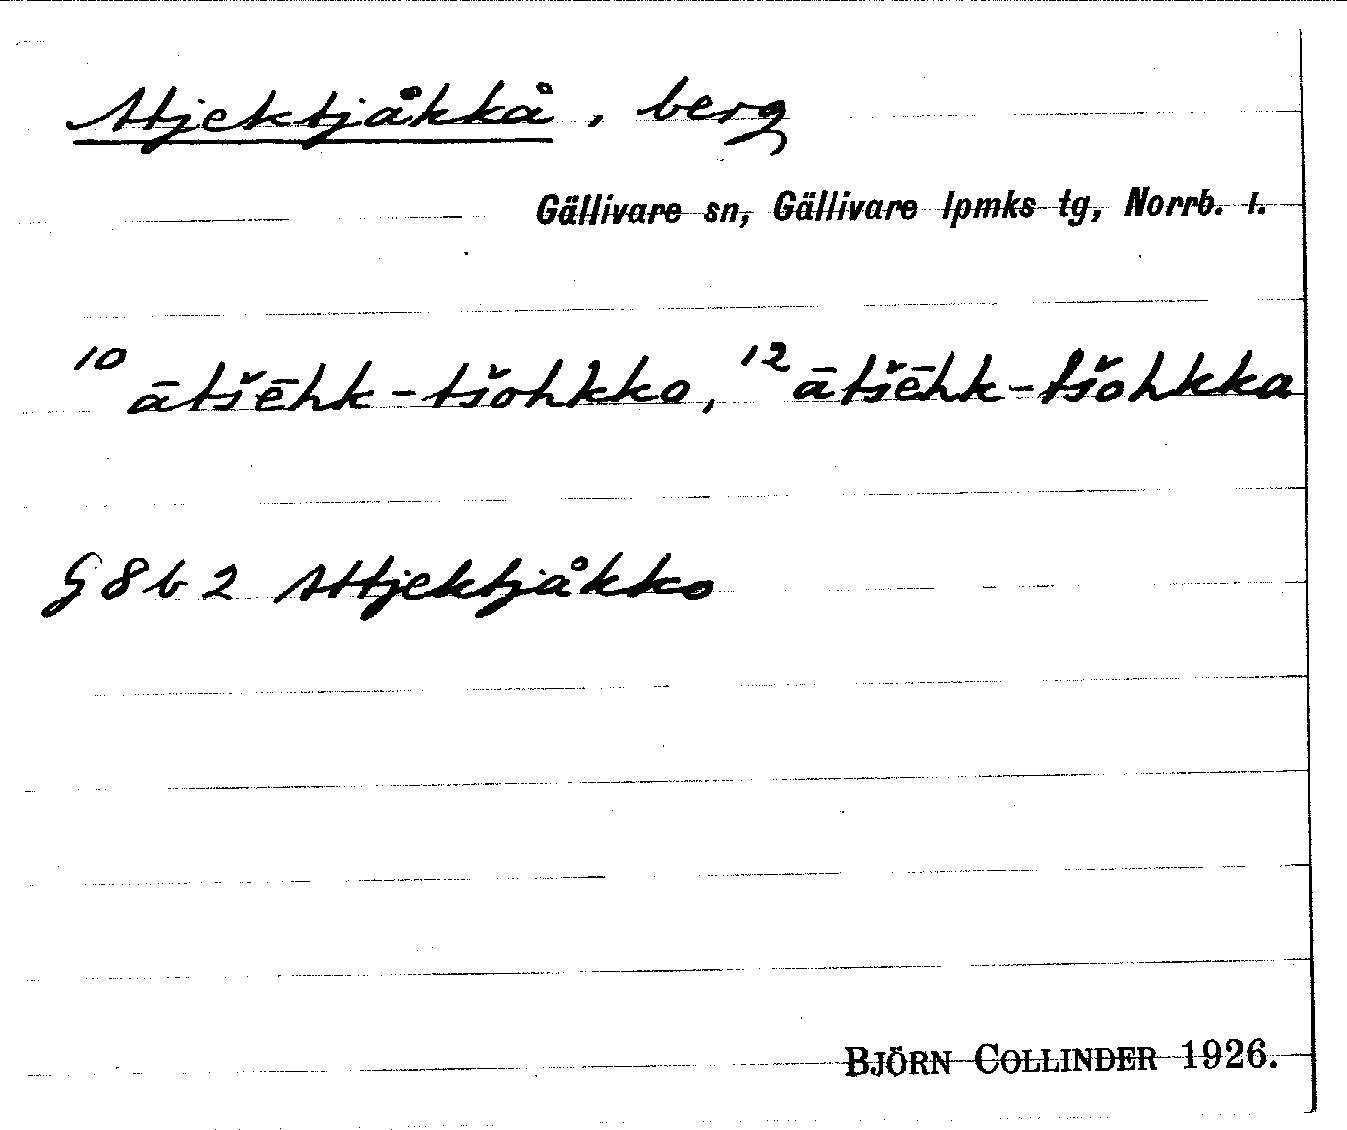 Attjektjåkkå, berg
Gällivare sn, Gällivare lpmks tg, Norrb. l.
10 ātšēhk-tšohkko, 12 ātšēhk-tšohkka
§ 8 b 2 Attjektjåkko
BJÖRN COLLINDER 1926.